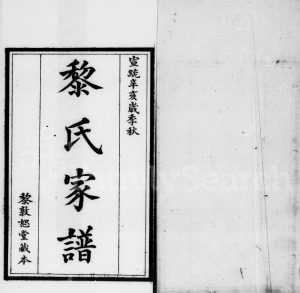 宣統辛亥歲季秋
黎氏家譜
黎敦恕堂藏本
FamilySearch